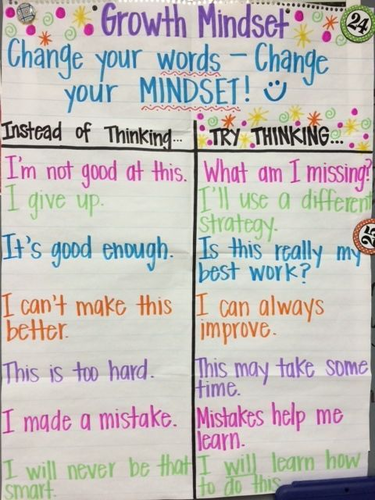 Growth Mindset
24
Change your words - Change
your MINDSET!
Instead of Thinking...
TRY THINKING...
I'm not good at this.
What am I missing?
I give up.
I'll use a different
strategy.
25
It's good enough.
Is this really my
best work?
I can't make this
better.
I can always
improve.
This is too hard.
This may take some
time.
I made a mistake.
Mistakes help me
learn.
I will never be that
smart.
I will learn how
to do this.